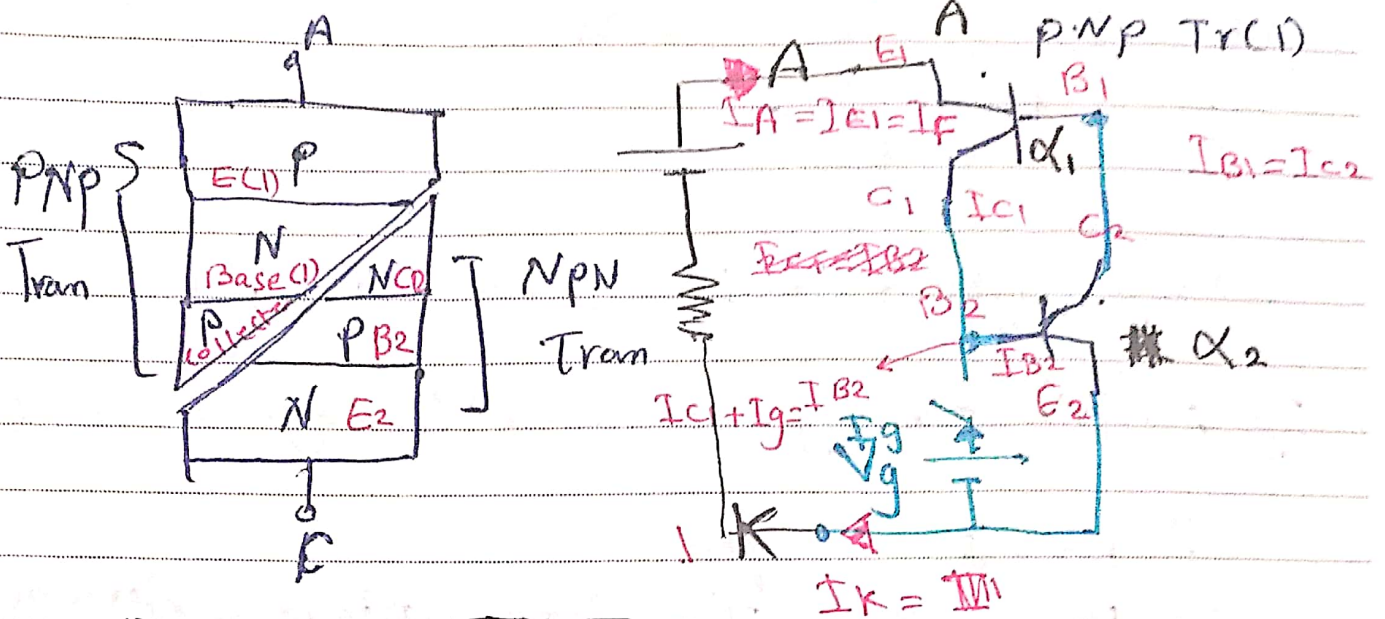 A
P
E(1)
PNP
Tran
N
Base(1)
NC2
P
collector
P B2
N E2
K
NPN
Tran
A
PNP Tr(1)
A
E1
B1
IA = IE1 = IF
α1
IB1 = IC2
C1
IC1
C2
B2
IB2
α2
IC1 + Ig = IB2
E2
Ig
Vg
K
IK =